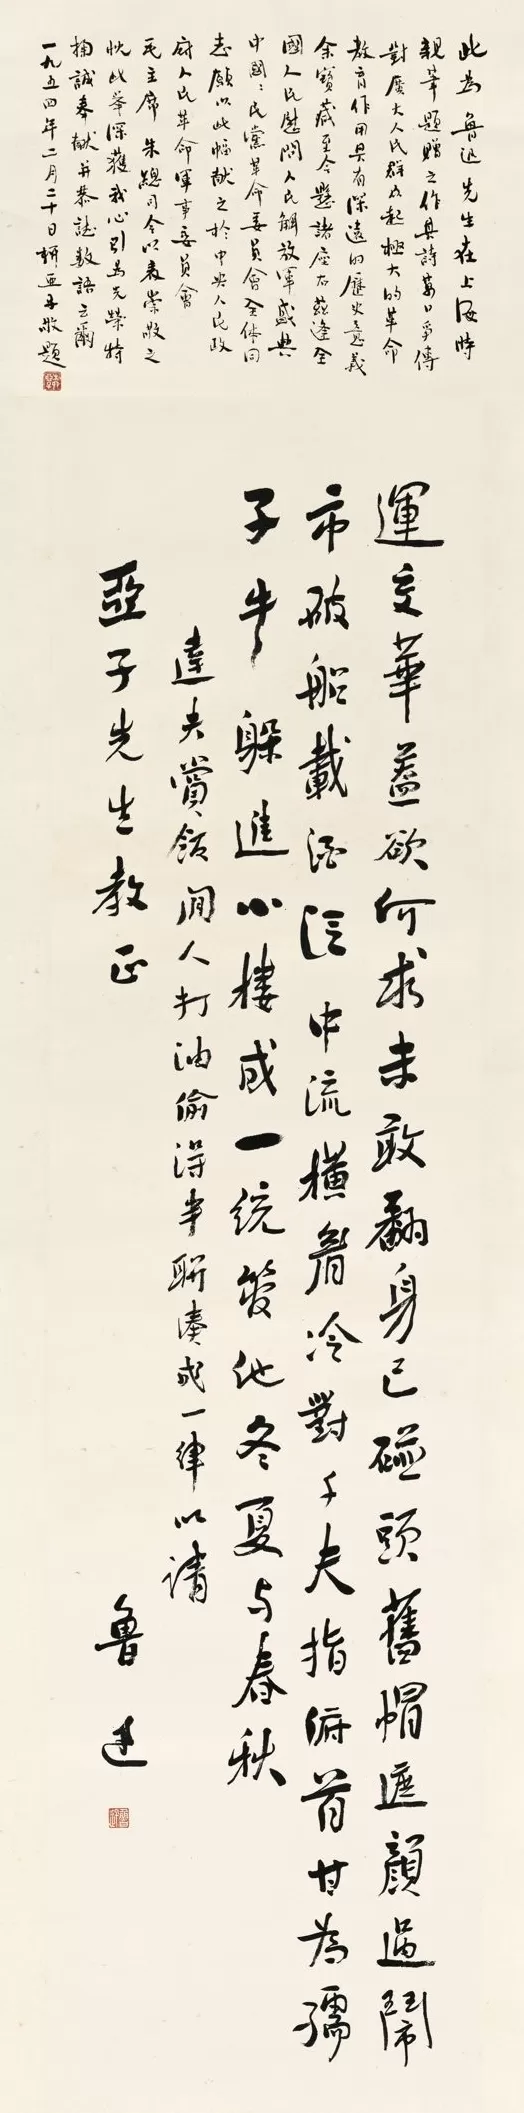 此為魯迅先生在上海時
親筆題贈之作其詩萬口爭傳
對廣大人民群众起極大的革命
教育作用具有深遠的歷史意義
余寶藏至今懸諸座右茲逢全
國人民慰問人民解放軍盛典
中國國民黨革命委員會全体同
志願以此幅献之於中央人民政
府人民革命軍事委員會
毛主席 朱總司令以表崇敬之
忱此举深獲我心引為光榮特
掬誠奉献并恭誌数語云爾
一九五四年二月二十日柳亞子敬題
運交華蓋欲何求未敢翻身已碰頭舊帽遮顏過鬧
市破船載酒泛中流橫眉冷對千夫指俯首甘為孺
子牛躲進小樓成一統管他冬夏与春秋
達夫賞飯閒人打油偷得半聯湊成一律以請
亞子先生教正
魯迅